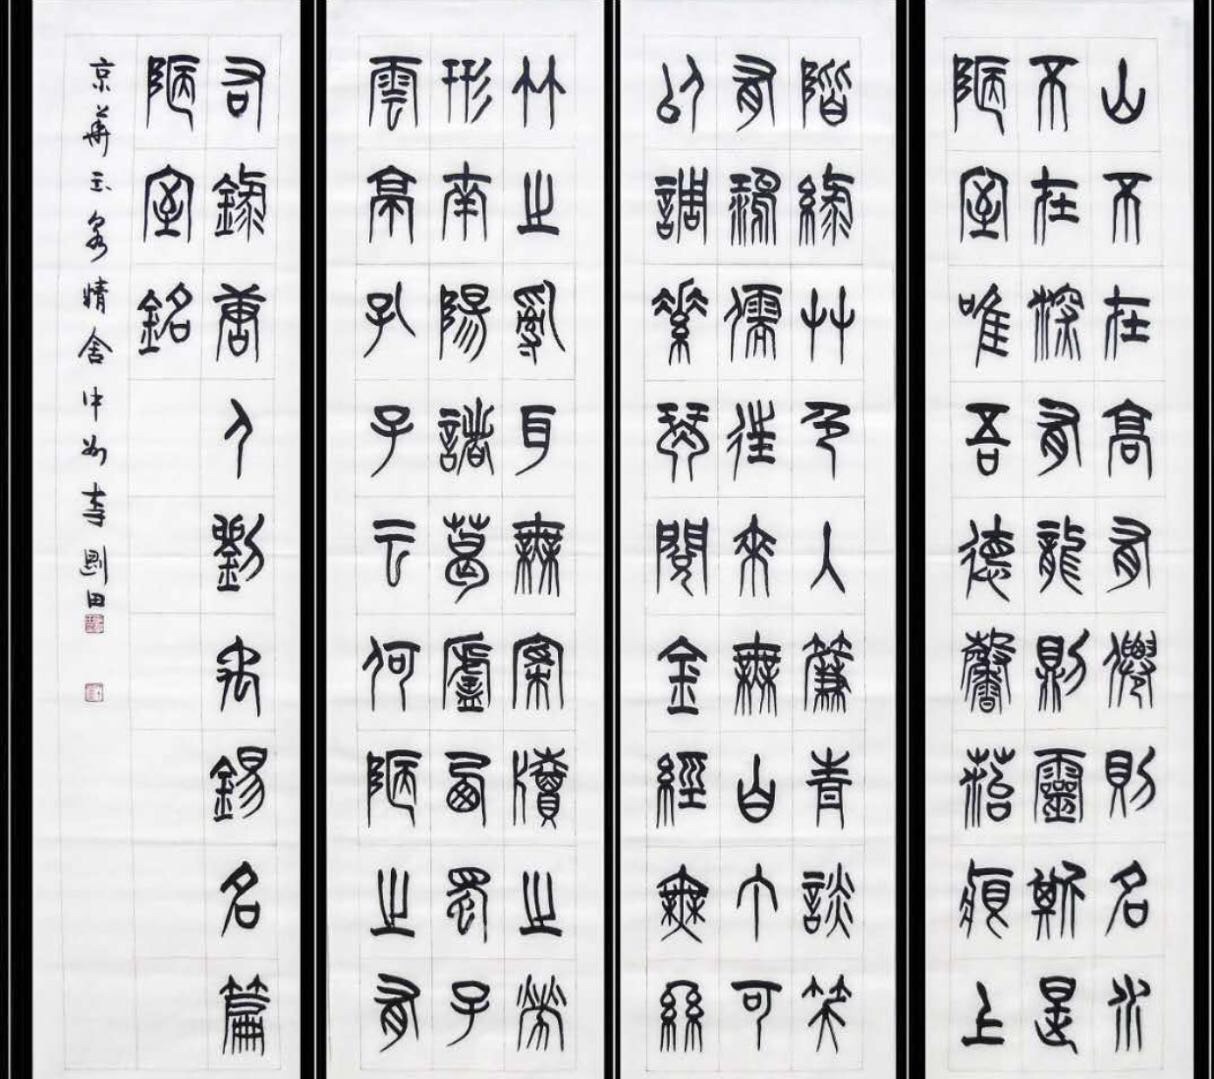 山不在高有僊則名水
不在深有龍則靈斯是
陋室唯吾德馨苔痕上
階綠艸色人簾青談笑
有鴻儒往來無白丁可
以調素琴閱金經無絲
竹之亂耳無案牘之勞
形南陽諸葛廬西蜀子
雲亭孔子云何陋之有
右錄唐人劉禹錫名篇
陋室銘
京華玉精舍中州李剛田